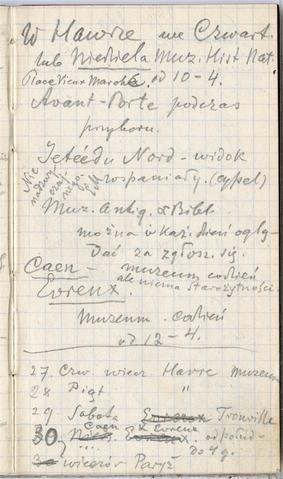 W Hawrze we Czwart.
lub Niedziela Muz. Hist Nat.
Place Vieux Marché, od 10-4.
Avant-Porte podczas
przyboru.
Jeteé du Nord - widok
wspaniały. (cypel)
Nic
Muz. Antiq. & Bibl.
można w każ. dzień oglą-
dać za zgłosz. się.
Caen - muzeum codzień
ale niema starożytności
Evreux.
Muzeum codzień
od 12-4.
27. Czw. wiecz. Havre muzeum
28 Piąt "
29. Sobota Trouville
Caen & Evreux
30 od połud-
Do 4 g.
wieczór Paryż